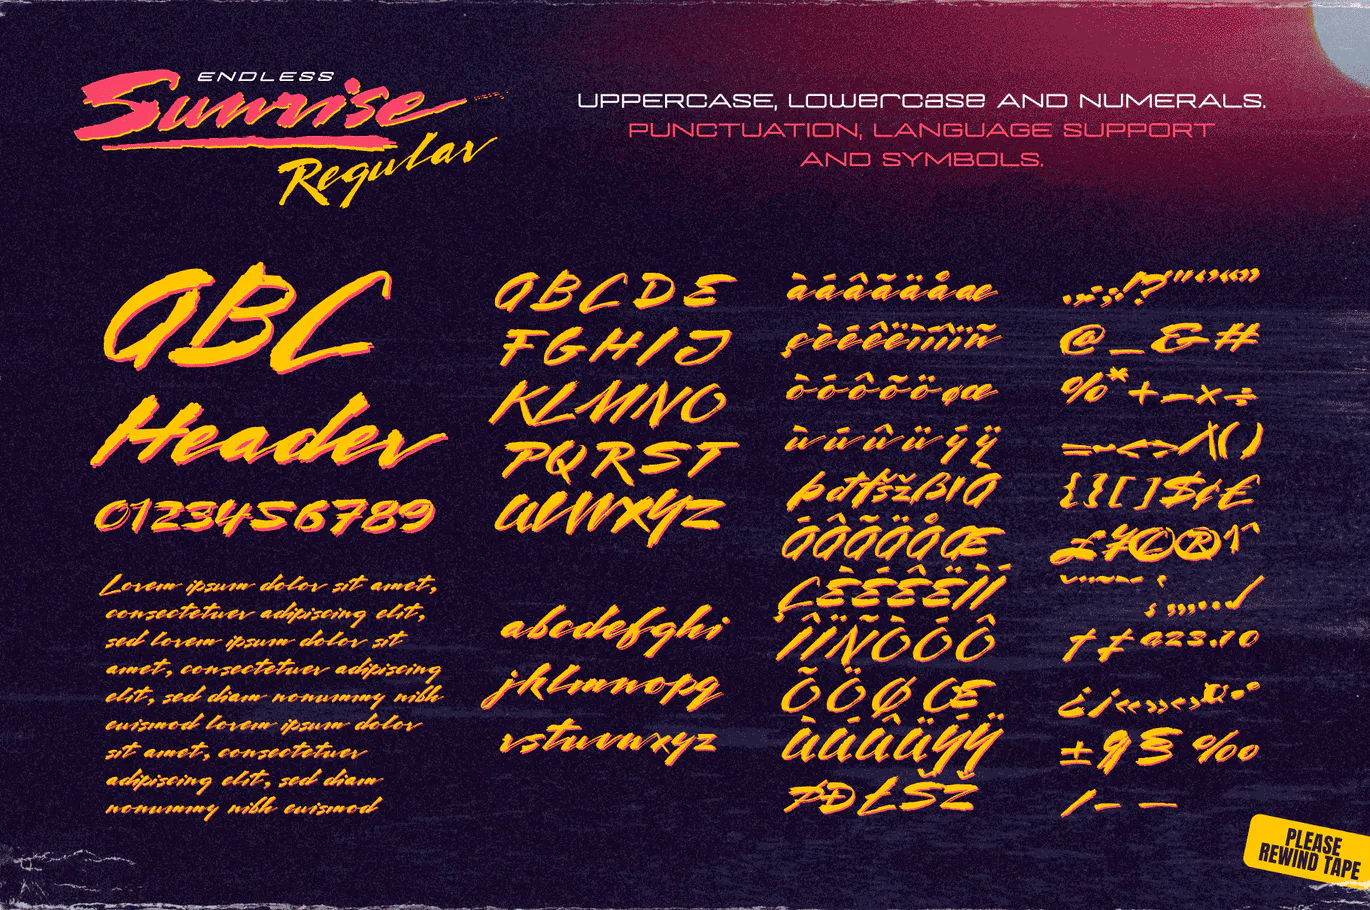 ENDLESS
Sunrise
Regular
UPPERCASE, Lowercase AND NUMERALS.
PUNCTUATION, LANGUAGE SUPPORT
AND SYMBOLS.
ABC
Header
0123456789
Lorem ipsum dolor sit amet,
consectetuer adipiscing elit,
sed lorem ipsum dolor sit
amet, consectetuer adipiscing
elit, sed diam nonummy nibh
euismod lorem ipsum dolor
sit amet, consectetuer
adipiscing elit, sed diam
nonummy nibh euismod
A B C D E
F G H I J
K L M N O
P Q R S T
U V W X Y Z
abcdefghi
jklmnopq
rstuvwxyz
à á â ã ä å æ
ç è é ê ë ì í î ï ñ
ò ó ô õ ö ø œ
ù ú û ü ý ÿ
þ đ ł š ž ß ı À
Á Â Ã Ä Å Æ
Ç È É Ê Ë Ì Í
Î Ï Ñ Ò Ó Ô
Õ Ö Ø Œ
Ù Ú Û Ü Ý Ÿ
Þ Đ Ł Š Ž
@ _ & #
% * + − × ÷
= ~ < > / \ ( )
{ } [ ] $ ¢ €
£ ¥ © ® ^
± ¶ § ‰
/ – —
PLEASE
REWIND TAPE